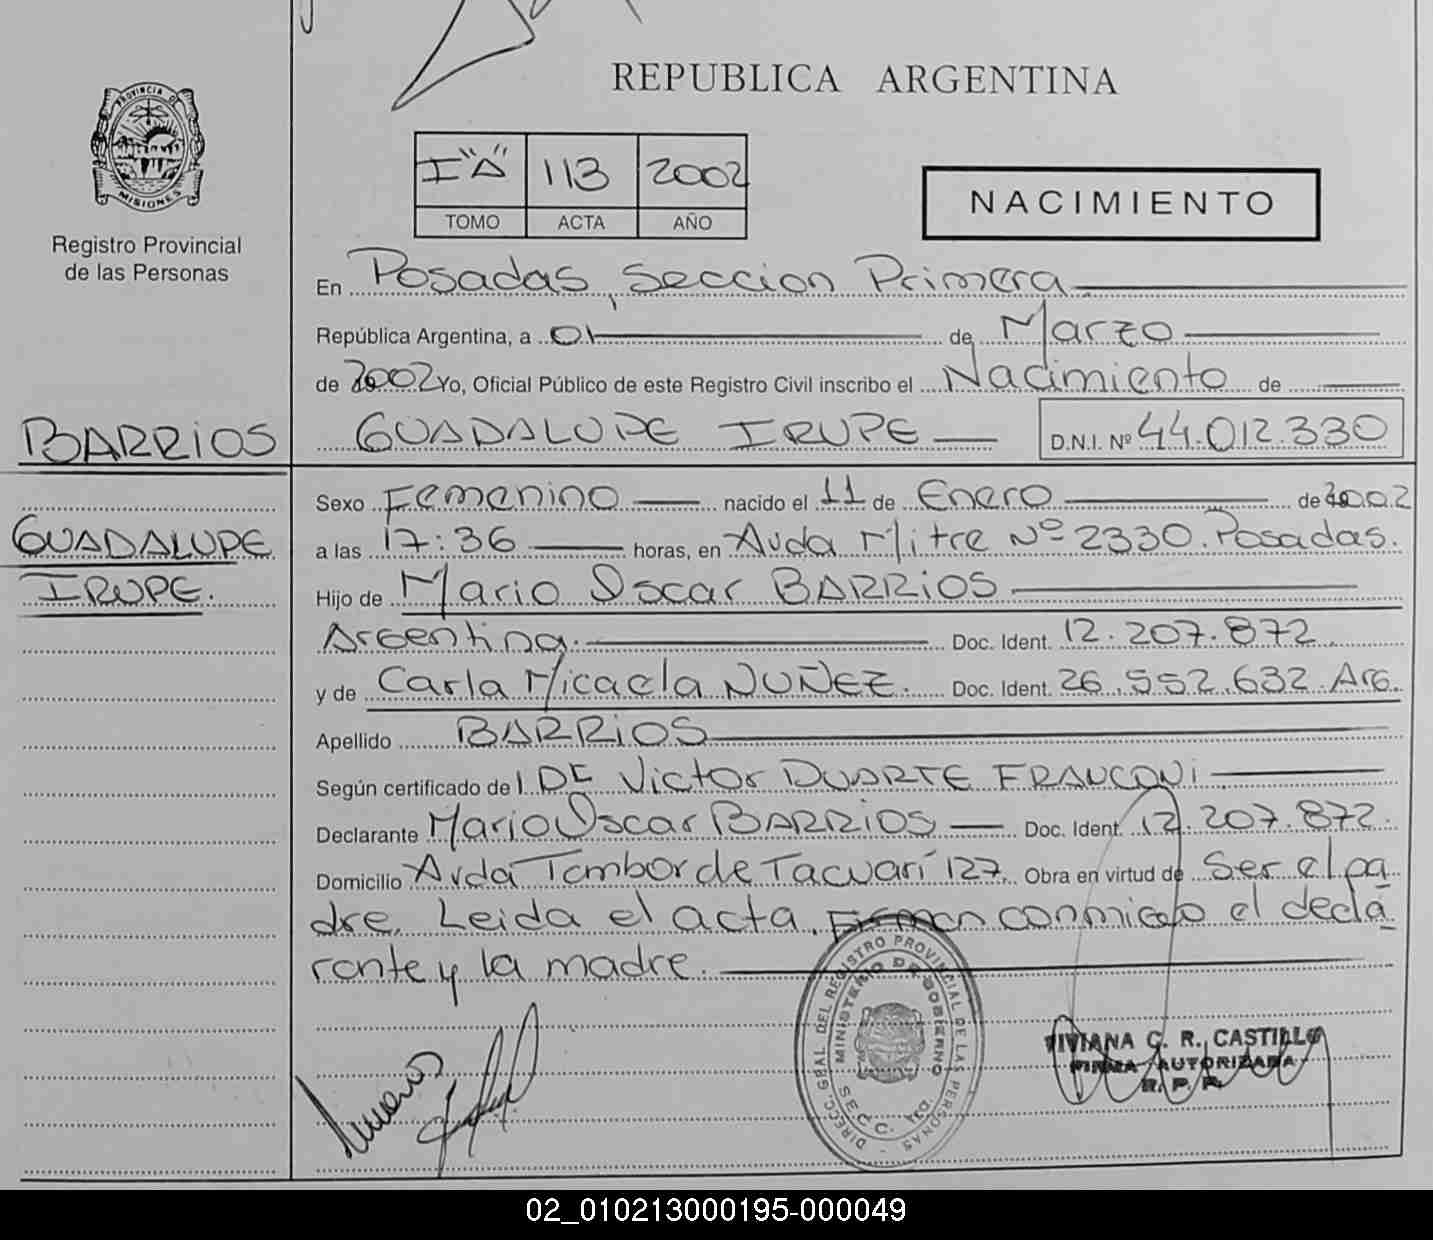 REPUBLICA ARGENTINA
PROVINCIA DE
MISIONES
Registro Provincial
de las Personas
I "A" 113 2002
TOMO ACTA AÑO
NACIMIENTO
En Posadas, Seccion Primera
República Argentina, a 01 de Marzo
de 2002 Yo, Oficial Público de este Registro Civil inscribo el Nacimiento de
BARRIOS
GUADALUPE IRUPE D.N.I. Nº 44.012.330
GUADALUPE
IRUPE.
Sexo Femenino nacido el 11 de Enero de 2002
a las 17:36 horas, en Avda Mitre Nº 2330. Posadas.
Hijo de Mario Oscar BARRIOS
Argentina. Doc. Ident. 12.207.872
y de Carla Micaela NUÑEZ. Doc. Ident. 26.552.632 Arg.
Apellido BARRIOS
Según certificado de Victor DUARTE FRANCONI
Declarante Mario Oscar BARRIOS Doc. Ident. 12.207.872.
Domicilio Avda Tambor de Tacuarí 127. Obra en virtud de Ser el pa
dre. Leida el acta, Firman conmigo el decla
rante y la madre.
DIRECC. GRAL DEL REGISTRO PROVINCIAL DE LAS PERSONAS
MINISTERIO DE GOBIERNO
SECC.
VIVIANA C. R. CASTILLO
FIRMA AUTORIZADA
R. P. P.
02_010213000195-000049